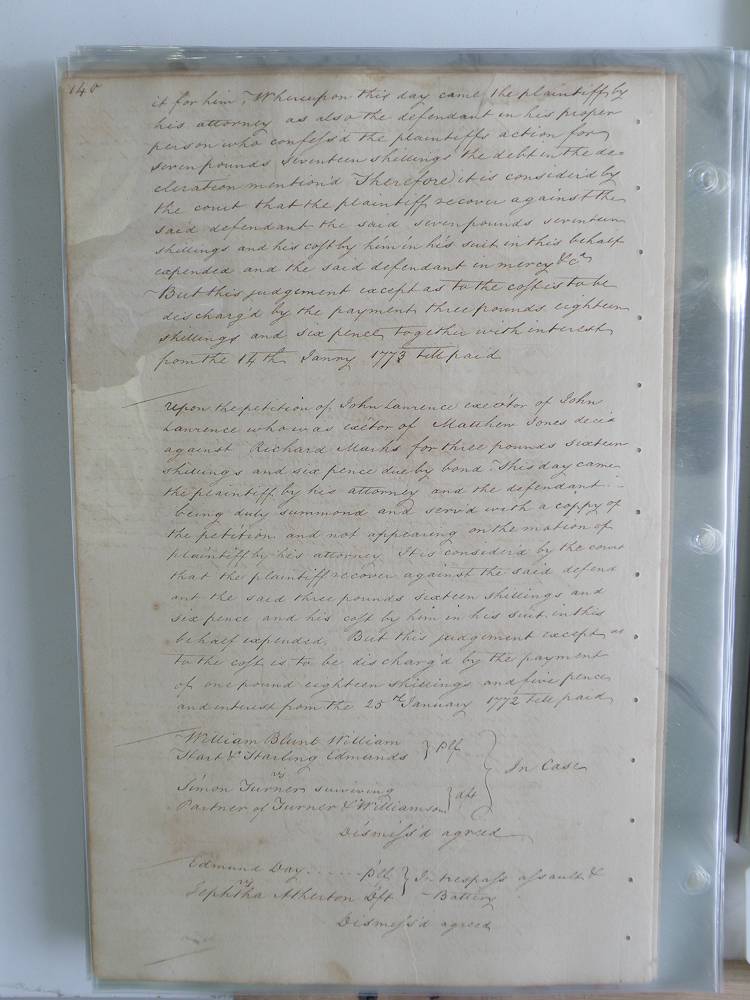 140
it for him, Whereupon this day came the plaintiff by
his attorney as also the defendant in his proper
person who confess'd the plaintiffs action for
seven pounds seventeen shillings the debt in the de=
claration mention'd Therefore it is consider'd by
the court that the plaintiff recover against the
said defendant the said seven pounds seventeen
shillings and his cost by him in his suit in this behalf
expended and the said defendant in mercy &ca
But this judgement except as to the cost is to be
discharg'd by the payment three pounds eighteen
shillings and six pence together with interest
from the 14th Janry 1773 till paid
Upon the petition of John Lawrence exec'tor of John
Lawrence who was ex'ctor of Matthew Jones dec'd
against Richard Marks for three pounds sixteen
shillings and six pence due by bond This day came
the plaintiff by his attorney and the defendant
being duly summond and serv'd with a coppy of
the petition and not appearing on the motion of
plaintiff by his attorney It is consider'd by the court
that the plaintiff recover against the said defend
ant the said three pounds sixteen shillings and
six pence and his cost by him in his suit in this
behalf expended. But this judgement except as
to the cost is to be discharg'd by the payment
of one pound eighteen shillings and five pence
and interest from the 25th January 1772 till paid
William Blunt William
Hart & Starling Edmunds } Plf
vs
In Case
Simon Turner surviving
Partner of Turner & Williamson } dft
Dismiss'd agreed
Edmund Day ...... Plf } In trespass assault &
vs
Jephtha Atherton Dft Battery
Dismiss'd agreed